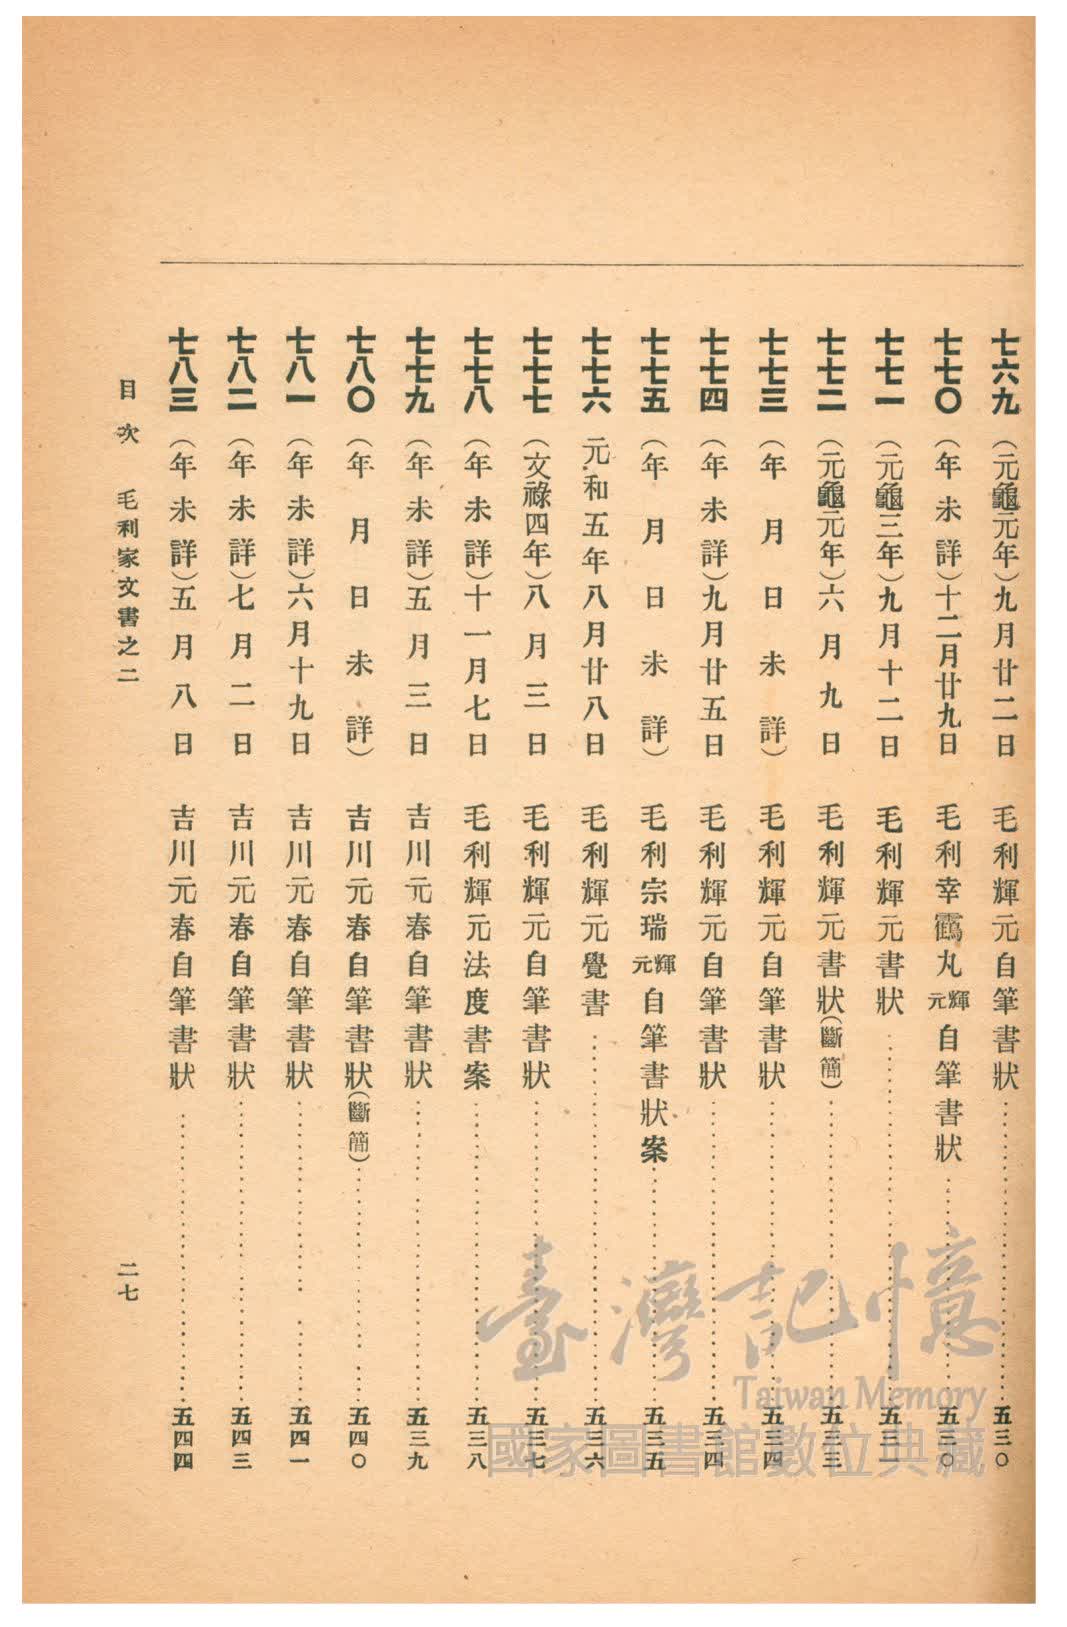 七六九 (元龜元年)九月廿二日 毛利輝元自筆書狀……五三〇
七七〇 (年未詳)十二月廿九日 毛利幸鶴丸輝元自筆書狀……五三〇
七七一 (元龜三年)九月十二日 毛利輝元書狀……五三二
七七二 (元龜元年)六月九日 毛利輝元書狀(斷簡)……五三三
七七三 (年月日未詳) 毛利輝元自筆書狀……五三四
七七四 (年未詳)九月廿五日 毛利輝元自筆書狀……五三四
七七五 (年月日未詳) 毛利宗瑞輝元自筆書狀案……五三五
七七六 元和五年八月廿八日 毛利輝元覺書……五三六
七七七 (文祿四年)八月三日 毛利輝元自筆書狀……五三七
七七八 (年未詳)十一月七日 毛利輝元法度書案……五三八
七七九 (年未詳)五月三日 吉川元春自筆書狀……五三九
七八〇 (年月日未詳) 吉川元春自筆書狀(斷簡)……五四〇
七八一 (年未詳)六月十九日 吉川元春自筆書狀……五四一
七八二 (年未詳)七月二日 吉川元春自筆書狀……五四三
七八三 (年未詳)五月八日 吉川元春自筆書狀……五四四
目次 毛利家文書之二 二七
臺灣記憶
Taiwan Memory
國家圖書館數位典藏